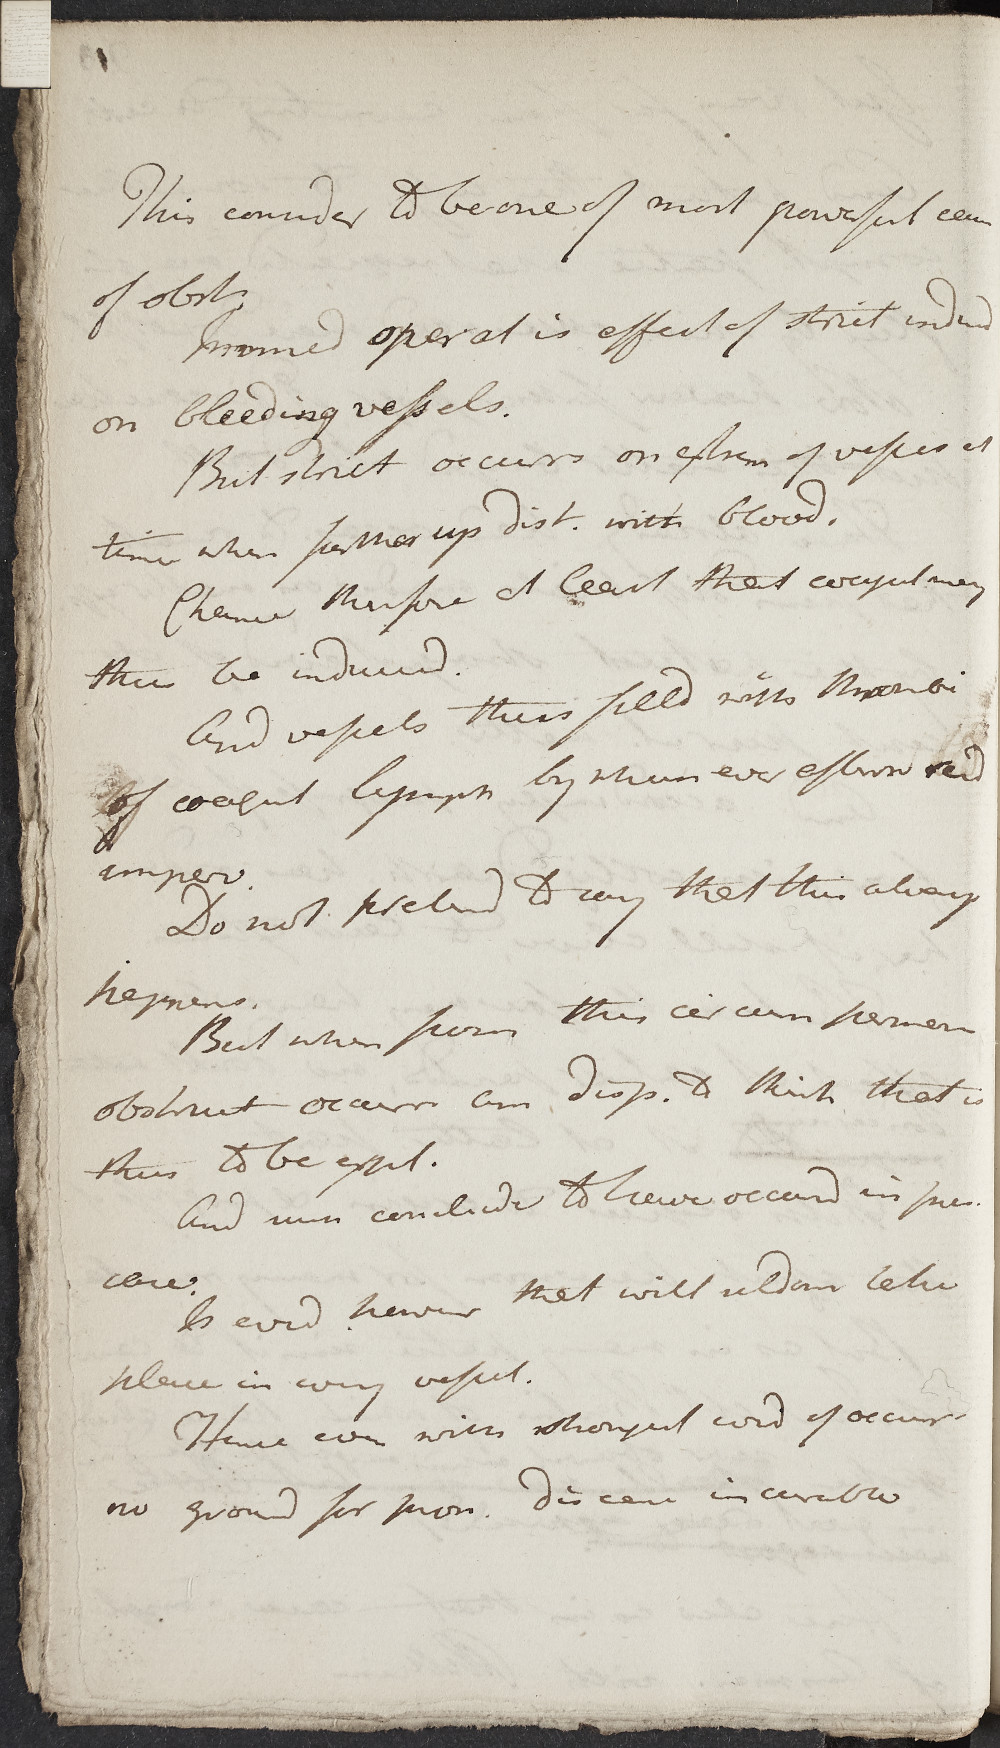 This consider to be one of most powerful caus
of obst.
Immed operat is effect of strict induced
on bleeding vessels.
But strict occurs on extrem of vessels at
time when farther up dist. with blood.
Chance therfore at least that coagul may
thus be induced.
And vessels thus filld with thrombi
of coagul lymph by whenever
imperv.
Do not pretend to say that this always
happens.
But when from this circum perman
obstruct occurs am disp. to think that is
thus to be expl.
And conclude to have occurd in pres.
case.
Is evid howevr that will seldom take
place in every vessel.
Hence even with strongest evid of occur
no ground for pron. disease incurable